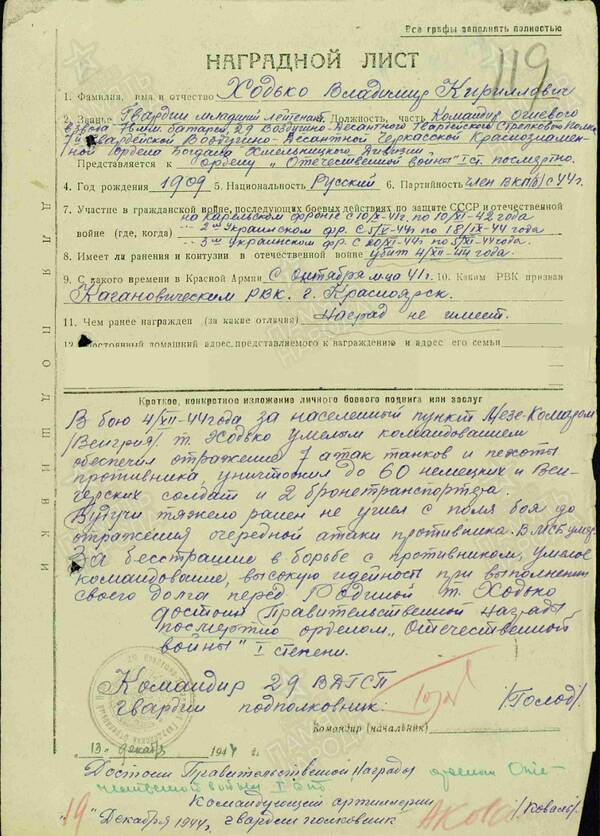 Все графы заполнять полностью
119
НАГРАДНОЙ ЛИСТ
1. Фамилия, имя и отчество Ходько Владимир Кириллович
2. Звание Гвардии младший лейтенант 3. Должность, часть Командир огневого
взвода 76 м.м. батареи, 29 Воздушно-Десантного Гвардейского Стрелкового Полка
7й Гвардейской Воздушно-Десантной Черкасской Краснознамен-
ной Ордена Богдана Хмельницкого Дивизии
Представляется к ордену „Отечественной войны" I ст. посмертно.
4. Год рождения 1909 5. Национальность Русский 6. Партийность член ВКП(б) с 44 г.
7. Участие в гражданской войне, последующих боевых действиях по защите СССР и отечественной
на Карельском фронте с 10/X-41г. по 10/XI-42 года
войне (где, когда) -"- 2ом Украинском фр. с 5/V-44г по 18/IX-44 год
-"- 3ем Украинском фр. с 20/XI-44г по 5/XI-44 года.
8. Имеет ли ранения и контузии в отечественной войне убит 4/XII-44 года.
9. С какого времени в Красной Армии с октября м-ца 41г. 10. Каким РВК призван
Кагановическим РВК. г. Красноярск.
11. Чем ранее награжден (за какие отличия) Наград не имеет.
12. Постоянный домашний адрес представляемого к награждению и адрес его семьи
ДЛЯ ПОДШИВКИ
Краткое, конкретное изложение личного боевого подвига или заслуг
В бою 4/XII-44 года за населенный пункт Мезе-Комаром
/Венгрия/ т. Ходько умелым командованием
обеспечил отражение 7 атак танков и пехоты
противника, уничтожил до 60 немецких и Вен-
герских солдат и 2 бронетранспортера.
Будучи тяжело ранен не ушел с поля боя до
отражения очередной атаки противника. В МСБ умер.
За бесстрашие в борьбе с противником, умелое
командование, высокую идейность при выполнении
своего долга перед Родиной т. Ходько
достоин Правительственной награды
посмертно орденом „Отечественной
войны" I степени.
Командир 29 ВДГСП
гвардии подполковник /Голод/
Командир (начальник)
„13" декабря 1944 г.
Достоин Правительственной Награды орденом Оте-
чественной войны I ст
Командующий артиллерии
„19" Декабря 1944г. гвардии полковник /Коваль/